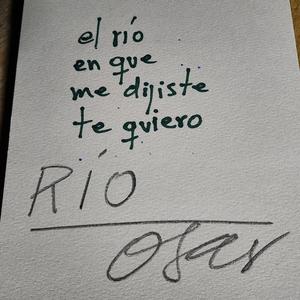 el río
en que
me dijiste
te quiero
RÍO
osar